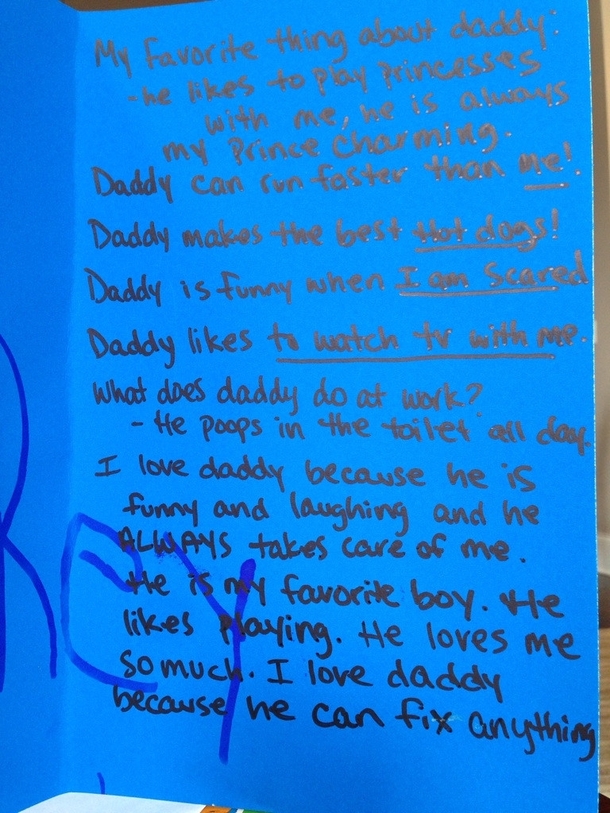 My Favorite thing about daddy:
-he likes to play princesses
with me, he is always
my Prince Charming.
Daddy can run faster than me!
Daddy makes the best Hot dogs!
Daddy is funny when I am scared
Daddy likes to watch tv with me.
What does daddy do at work?
- He poops in the toilet all day.
I love daddy because he is
funny and laughing and he
ALWAYS takes care of me.
He is my favorite boy. He
likes playing. He loves me
so much. I love daddy
because he can fix anything